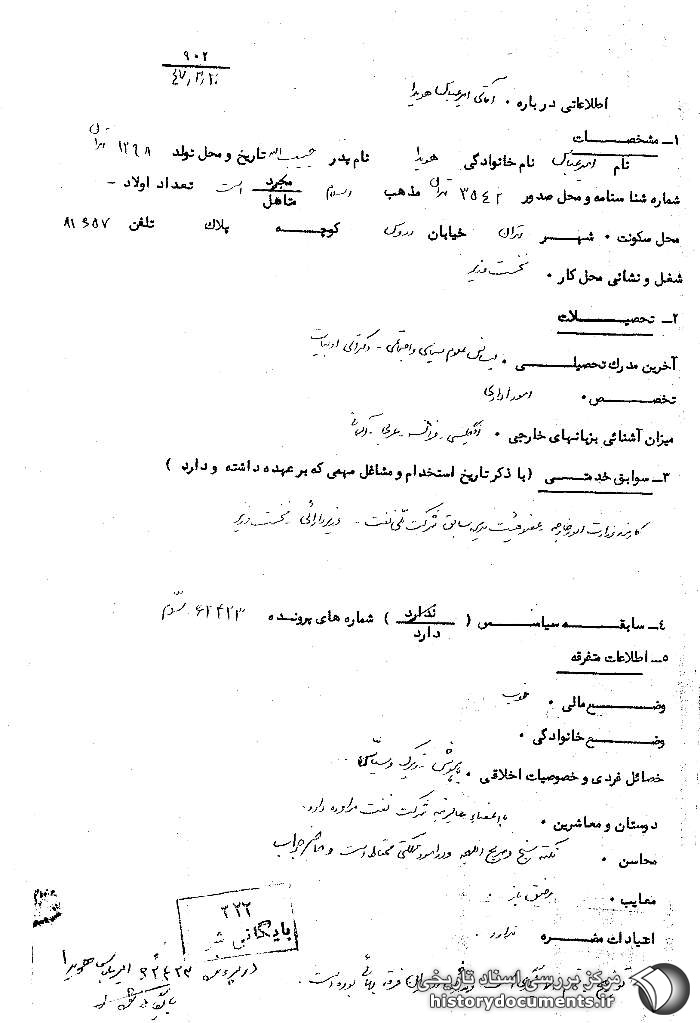 ۹۰۲
۴۷٫۳٫۲۰
اطلاعاتی درباره ۰ آقای امیرعباس هویدا
۱ــ مشخصــات
نام امیرعباس نام خانوادگی هویدا نام پدر حبیب‌الله تاریخ و محل تولد ۱۲۹۸ تهران
شماره شناسنامه و محل صدور ۳۵۴۲ تهران مذهب اسلام مجرد متاهل است تعداد اولاد -
محل سکونت ۰ شهــر تهران خیابان دروس کوچــه پلاک تلفن ۸۱۶۵۷
شغل و نشانی محل کار ۰ نخست وزیر
۲ــ تحصیــلات
آخرین مدرک تحصیلــی ۰ لیسانس علوم سیاسی و اجتماعی - دکترای ادبیات
تخصــص ۰ امور اداری
میزان آشنائی بزبانهای خارجی ۰ انگلیسی - فرانسه - عربی - آلمانی
۳ــ سوابق خدمتــی (با ذکر تاریخ استخدام و مشاغل مهمی که بر عهده داشته و دارد )
کارمند وزارت امور خارجه - عضو هیئت مدیره سابق شرکت ملی نفت - وزیر دارائی - نخست وزیر
۴ــ سابقــه سیاســی ( ندارد دارد ) شماره های پرونده ۶۲۴۲۳ سوم
۵ــ اطلاعات متفرقه
وضــع مالی ۰ خوب
وضــع خانوادگی ۰
خصائل فردی و خصوصیات اخلاقی ۰ باهوش
دوستان و معاشرین ۰ با اعضاء عالیرتبه شرکت نفت مراوده دارد.
محاسن ۰ نکته سنج و صریح اللهجه و در امور مملکتی محتاط است و حاضر جواب
معایب ۰ رفیق باز
اعتیادات مضــره ۰ ندارد
۳۲۲
بایگانی شد
در پرونده ۶۲۴۲۳ امیرعباس هویدا
بایگانی
بوده است.
مرکز بررسی اسناد تاریخی
historydocuments.ir